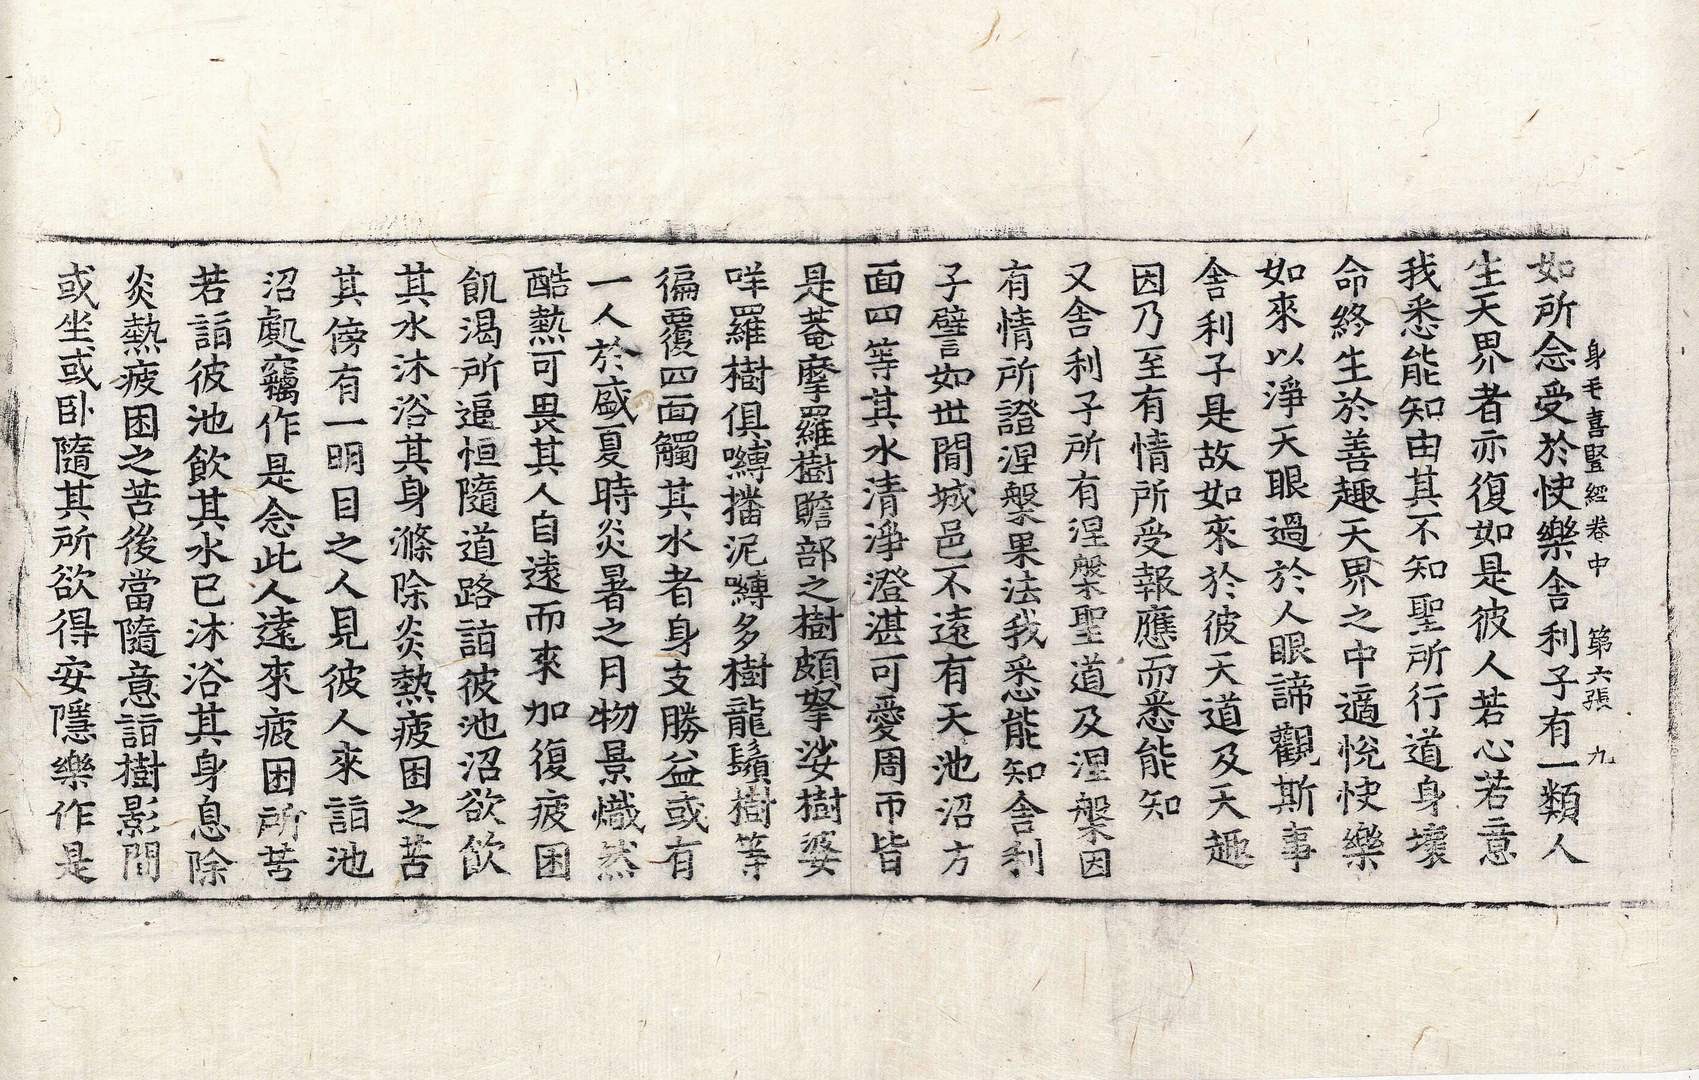 身毛喜豎經卷中　第六張　九
如所念受於快樂舍利子有一類人
生天界者亦復如是彼人若心若意
我悉能知由其不知聖所行道身壞
命終生於善趣天界之中適悅快樂
如來以淨天眼過於人眼諦觀斯事
舍利子是故如來於彼天道及天趣
因乃至有情所受報應而悉能知
又舍利子所有涅槃聖道及涅槃因
有情所證涅槃果法我悉能知舍利
子譬如世間城邑不遠有天池沼方
面四等其水清淨澄湛可愛周帀皆
是菴摩羅樹贍部之樹頗拏娑樹婆
咩羅樹俱嚩播泥嚩多樹龍鬚樹等
徧覆四面觸其水者身支勝益或有
一人於盛夏時炎暑之月物景熾然
酷熱可畏其人自遠而來加復疲困
飢渴所逼恒隨道路詣彼池沼欲飲
其水沐浴其身滌除炎熱疲困之苦
其傍有一明目之人見彼人來詣池
沼處竊作是念此人遠來疲困所苦
若詣彼池飲其水已沐浴其身息除
炎熱疲困之苦後當隨意詣樹影間
或坐或臥隨其所欲得安隱樂作是